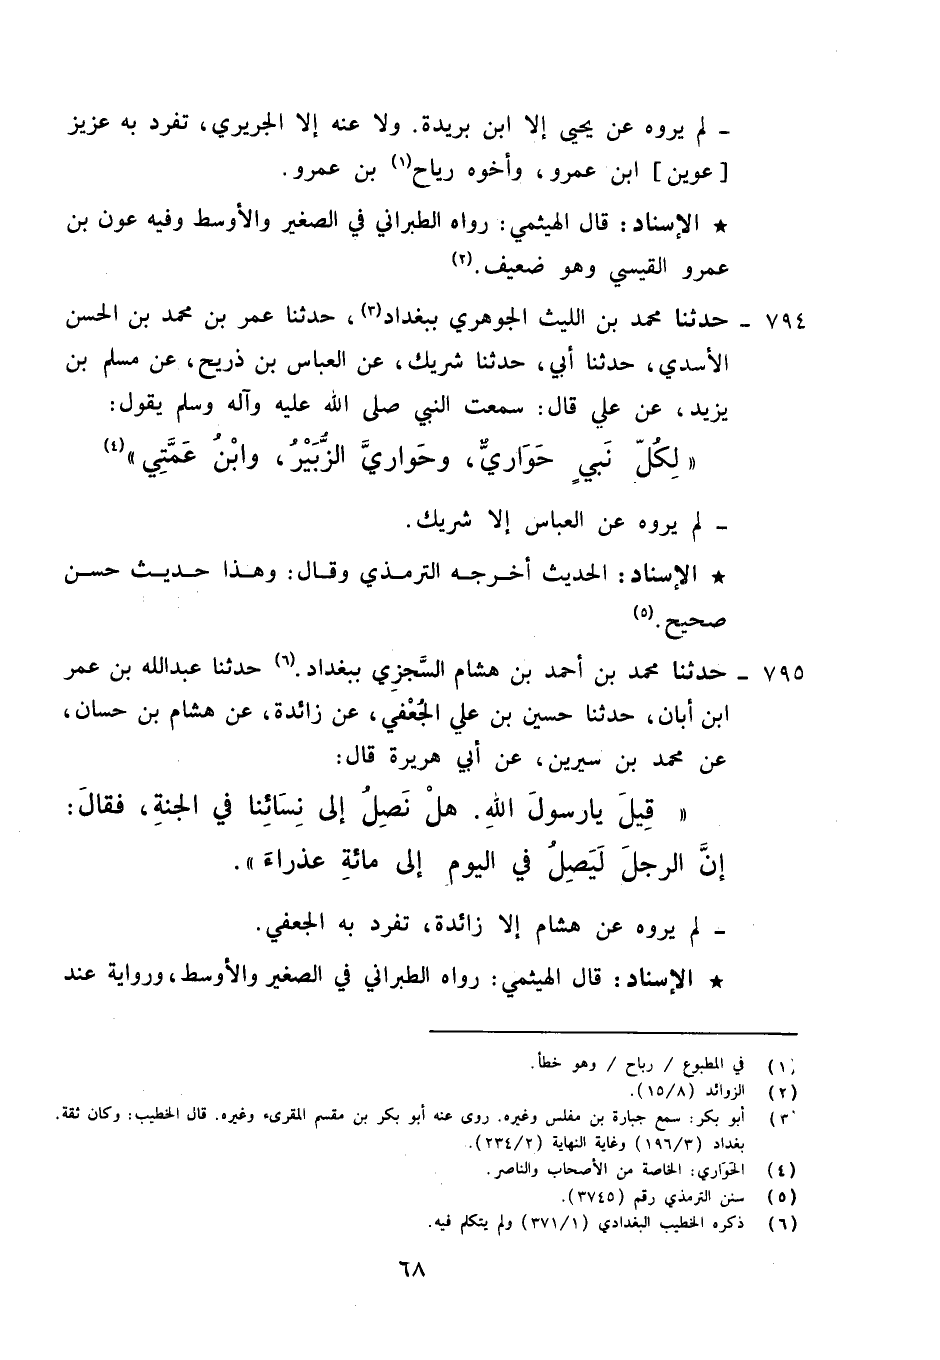 ــ لم يروه عن يحيى إلا ابن بريدة. ولا عنه إلا الجريري، تفرد به عزيز
[عوين] ابن عمرو، وأخوه رياح(١) بن عمرو.
★ الإسناد: قال الهيثمي: رواه الطبراني في الصغير والأوسط وفيه عون بن
عمرو القيسي وهو ضعيف.(٢)
٧٩٤ ــ حدثنا محمد بن الليث الجوهري ببغداد(٣)، حدثنا عمر بن محمد بن الحسن
الأسدي، حدثنا أبي، حدثنا شريك، عن العباس بن ذريح، عن مسلم بن
يزيد، عن علي قال: سمعت النبي صلى الله عليه وآله وسلم يقول:
« لِكُلّ نَبيٍ حَوَاريٌّ، وحَواريَّ الزُّبَيْرُ، وابْنُ عَمَّتِي »(٤)
ــ لم يروه عن العباس إلا شريك.
★ الإسناد: الحديث أخرجه الترمذي وقال: وهذا حديث حسن
صحيح.(٥)
٧٩٥ ــ حدثنا محمد بن أحمد بن هشام السَّجزِي ببغداد.(٦) حدثنا عبدالله بن عمر
ابن أبان، حدثنا حسين بن علي الجُعْفي، عن زائدة، عن هشام بن حسان،
عن محمد بن سيرين، عن أبي هريرة قال:
« قِيلَ يارسولَ اللهِ. هلْ نَصِلُ إلى نِسَائِنا في الجنةِ، فقالَ:
إنَّ الرجلَ لَيَصِلُ في اليوم إلى مائةِ عذراءَ ».
ــ لم يروه عن هشام إلا زائدة، تفرد به الجعفي.
★ الإسناد: قال الهيثمي: رواه الطبراني في الصغير والأوسط، ورواية عند
(١) في المطبوع / رباح / وهو خطأ.
(٢) الزوائد (١٥/٨).
(٣) أبو بكر: سمع جبارة بن مفلس وغيره. روى عنه أبو بكر بن مقسم المقرىء وغيره. قال الخطيب: وكان ثقة.
بغداد (١٩٦/٣) وغاية النهاية (٢٣٤/٢).
(٤) الحَوَاري: الخاصة من الأصحاب والناصر.
(٥) سنن الترمذي رقم (٣٧٤٥).
(٦) ذكره الخطيب البغدادي (٣٧١/١) ولم يتكلم فيه.
٦٨